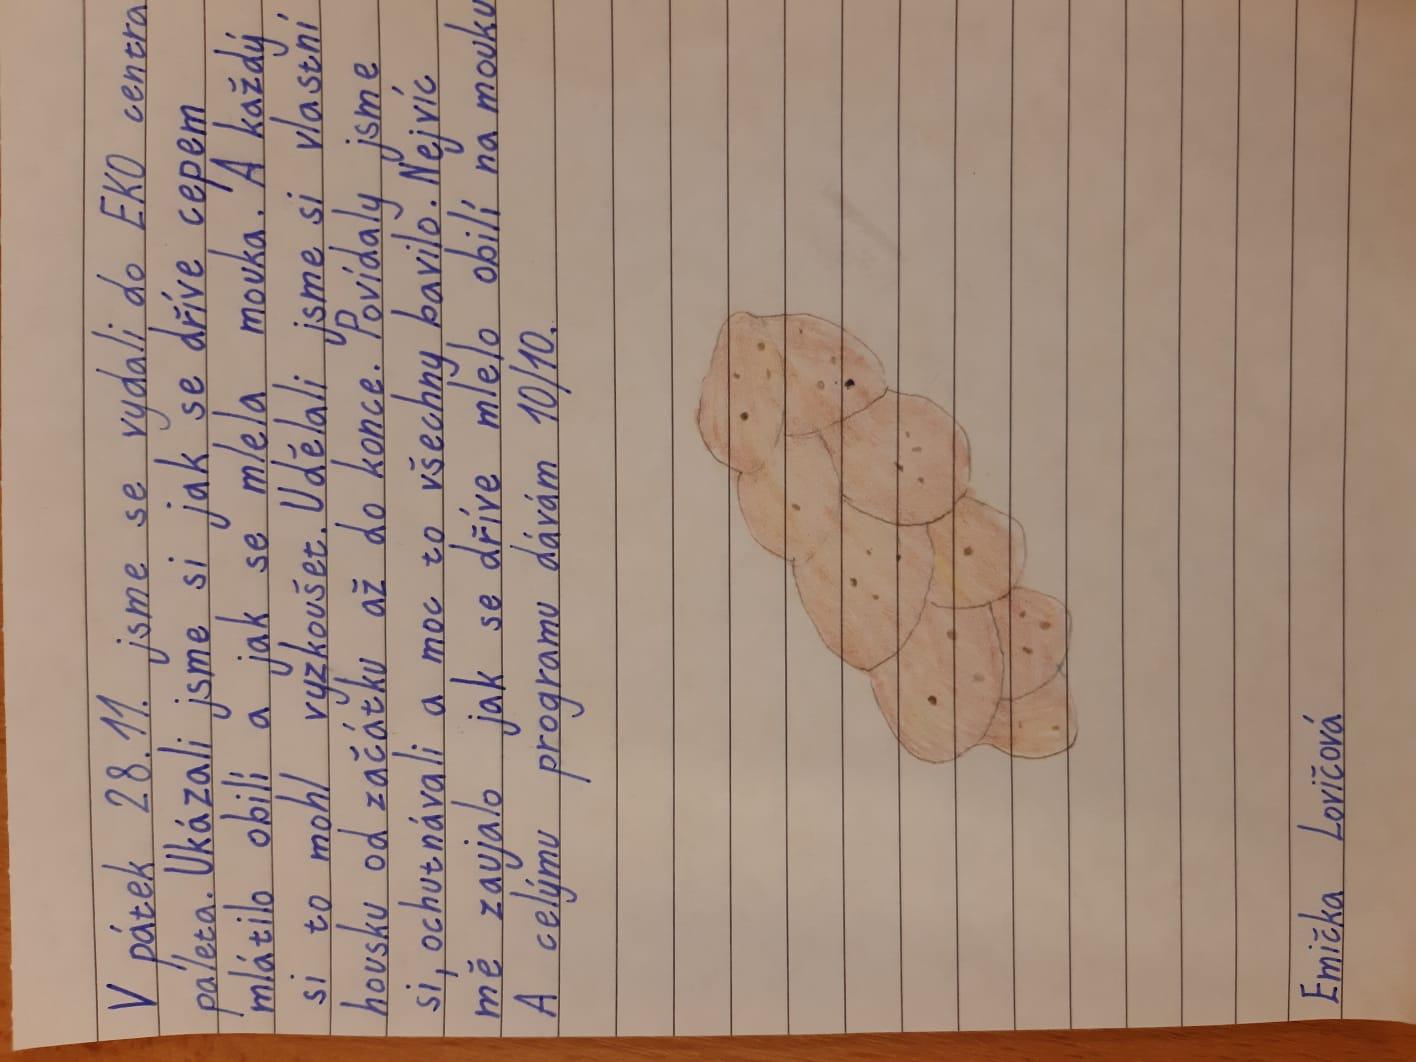 V pátek 28.11. jsme se vydali do EKO centra
páleta. Ukázali jsme si jak se dříve cepem
mlátilo obilí a jak se mlela mouka. A každý
si to mohl vyzkoušet. Udělali jsme si vlastní
housku od začátku až do konce. Povídaly jsme
si, ochutnávali a moc to všechny bavilo. Nejvíc
mě zaujalo jak se dříve mlelo obilí na mouku
A celýmu programu dávám 10/10.
Emička Lovičová